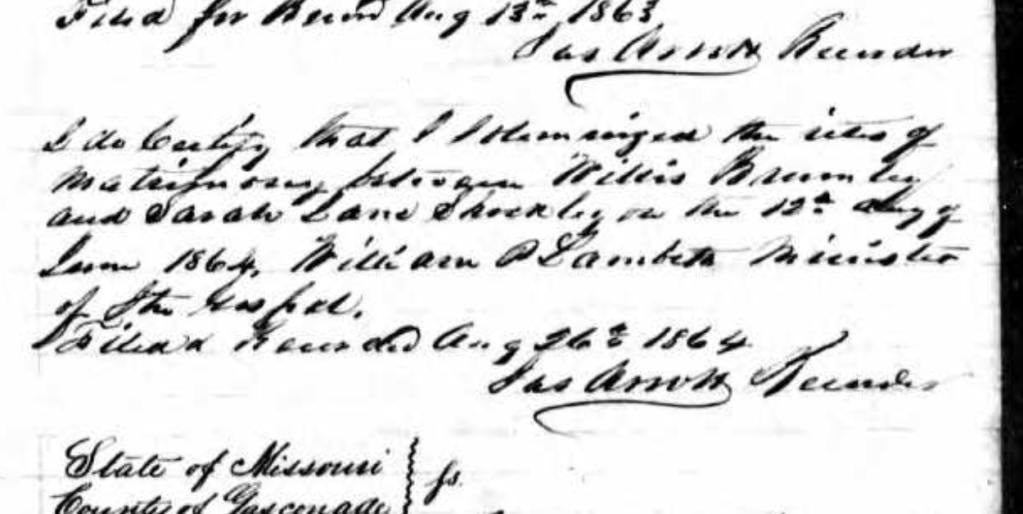 Filed for Record Aug 13th 1863
Jas Arnott Recorder
I do Certify that I Solemnized the rites of
Matrimony between Willis Brumley
and Sarah Jane Shockley on the 12th day of
June 1864, William P Lambeth Minister
of the Gospel.
Filed & Recorded Aug 26th 1864
Jas Arnott Recorder
State of Missouri } ss.
County of Gasconade